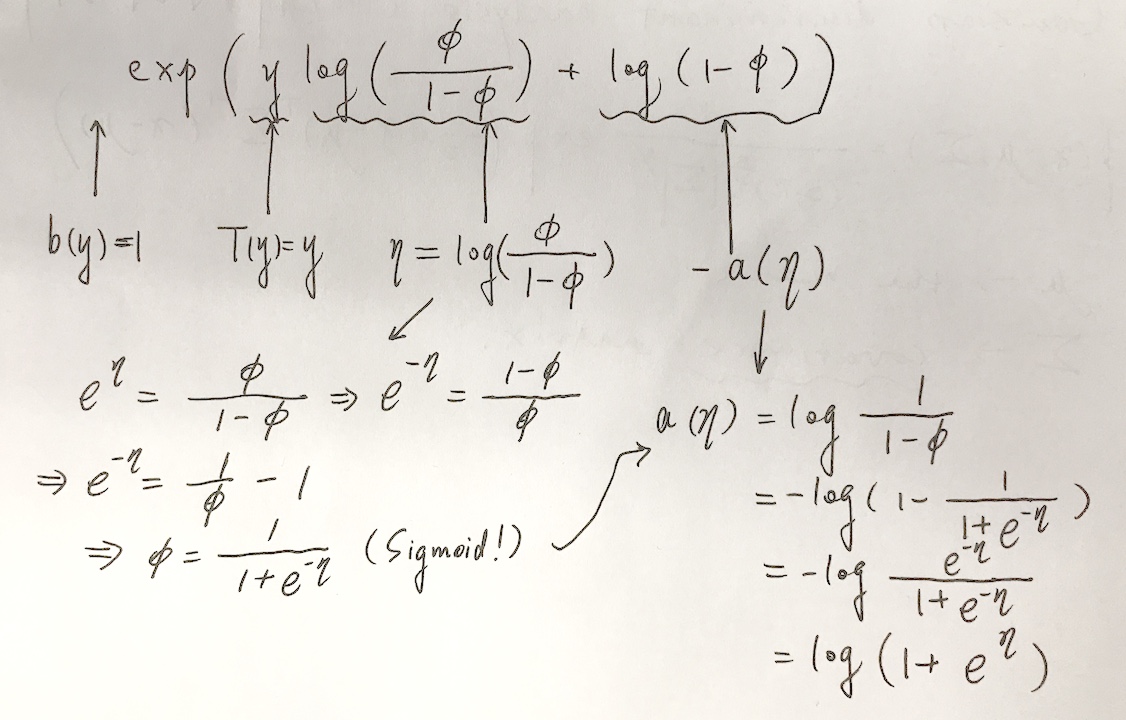 exp ( y log ( ϕ / 1 - ϕ ) + log (1 - ϕ) )
b(y)=1 T(y)=y η = log( ϕ / 1 - ϕ ) - a(η)
e^η = ϕ / 1 - ϕ ⇒ e^-η = 1 - ϕ / ϕ
⇒ e^-η = 1 / ϕ - 1
⇒ ϕ = 1 / 1 + e^-η (Sigmoid!)
a(η) = log 1 / 1 - ϕ
= - log ( 1 - 1 / 1 + e^-η )
= - log e^-η / 1 + e^-η
= log ( 1 + e^η )